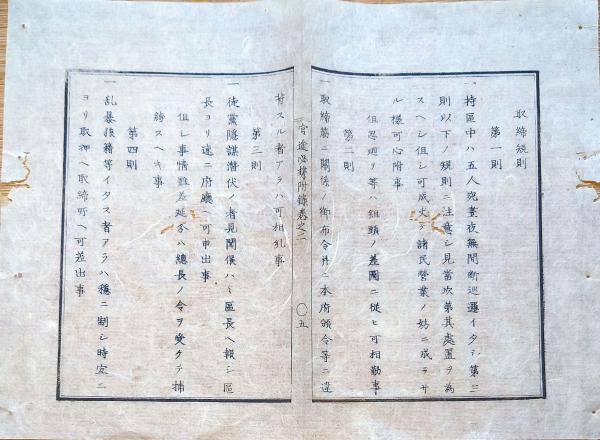 取締規則
第一則
一 持區中ハ五人宛晝夜無間断巡邏イタシ第三
則以下ノ規則ニ注意シ見當次第其處置ヲ為
スヘシ但シ可成丈ケ諸民營業ノ妨ニ成ラサ
ル様可心附事
但忍廻リ等ハ組頭ノ差圖ニ從ヒ可相勤事
第二則
一 取締筋ニ關係ノ御布令并ニ本府頒令等ニ違
官途必携附録巻之二
〇五
背スル者アラハ可相糺事
第三則
一 徒黨隠謀潜伏ノ者見聞候ハヽ區長ヘ報シ區
長ヨリ速ニ府廳ヘ可申出事
但シ事情難差延分ハ總長ノ令ヲ受ケテ捕
縛スヘキ事
第四則
一 乱暴狼籍等イタス者アラハ穏ニ制シ時宜ニ
ヨリ取押ヘ取締所ヘ可差出事